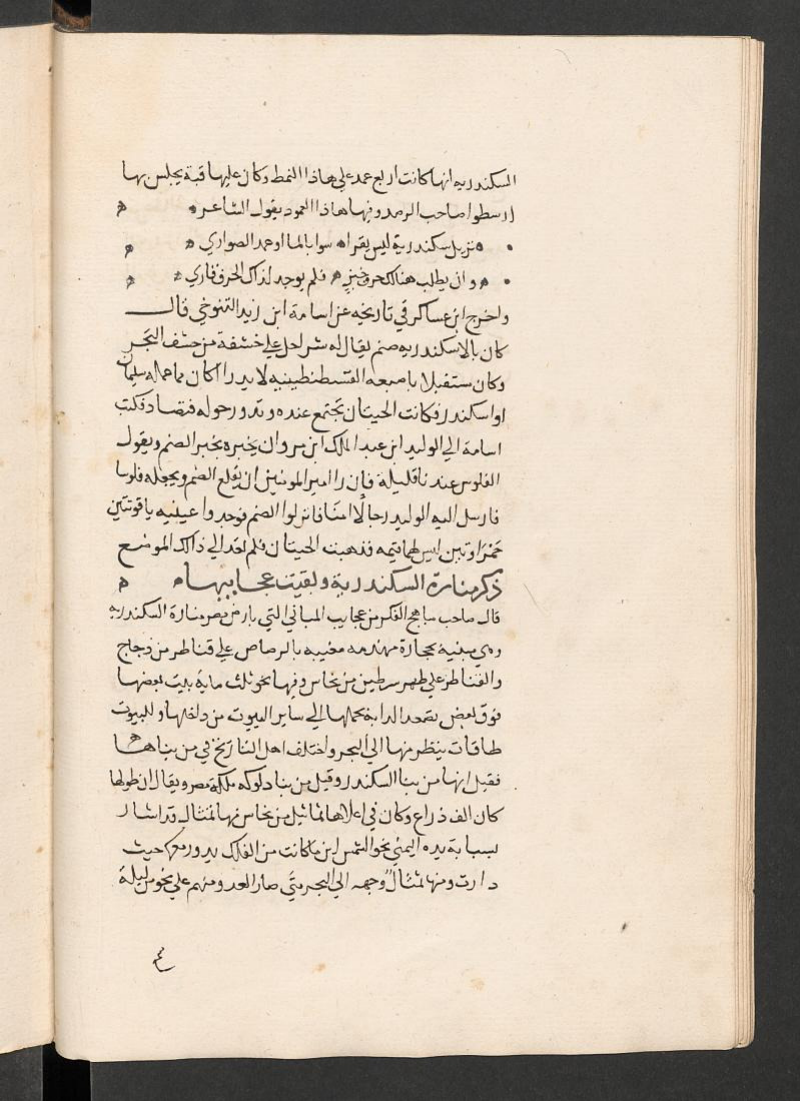 السكندريه انها كانت اربع عمد علي هاذا النمط وكان عليها قبة يجلس بها
ارسطوا صاحب الرصد وفيها هاذا العمود يقول الشاعر
نزيل سكندرية ليس يقراه سوا بالما او عمد الصواري
وان يطلب هنالك حرف خبز فلم يوجد لذاك الحرف قاري
واخرج ابن عساكر في تاريخه عن اسامة ابن زيد التنوخي قال
كان بالاسكندريه صنم يقال له شراحل علي خشفة من حشف البحر
وكان مستقبلا باصبعه القسطنطينيه لا يدرا اكان مما عمله سليمان
او اسكندر فكانت الحيتان تجتمع عنده وتدور حوله فتصاد فكتب
اسامة الي الوليد ابن عبد الملك ابن مروان يخبره بخبر الصنم ويقول
الفلوس عندنا قليلة فان را امير المومنين ان يقلع الصنم ويجعله فلوسا
فارسل اليه الوليد رجالا امنا فانزلوا الصنم فوجدوا عينيه ياقوتتين
حمراوتين ليس لهما قيمه فذهبت الحيتان فلم تعد الي ذالك الموضع
ذكر منارة السكندرية وبقيت عجايبها
قال صاحب مباهج الفكر من عجايب المباني التي بارض مصر منارة السكندريه
وهي مبنيه بحجارة مهندمه مضببه بالرصاص علي قناطر من زجاج
والقناطر علي ظهر سرطين من نحاس وفيها نحو ثلث ماية بيت بعضها
فوق بعض تصعد الدابة بحملها الي ساير البيوت من داخلها وللبيوت
طاقات ينظر منها الي البحر واختلف اهل التاريخ في من بناها
فقيل انها من بنا السكندر وقيل من بنا دلوكه ملكة مصر ويقال ان طولها
كان الف ذراع وكان في اعلاها تماثيل من نحاس منها تمثال قد اشار
بسبابة يده اليمني نحو الشمس اين ما كانت من الفلك يدور معها حيث
دارت ومنها تمثال وجهه الي البحر متي صار العدو منهم علي نحو من ليلة
٤